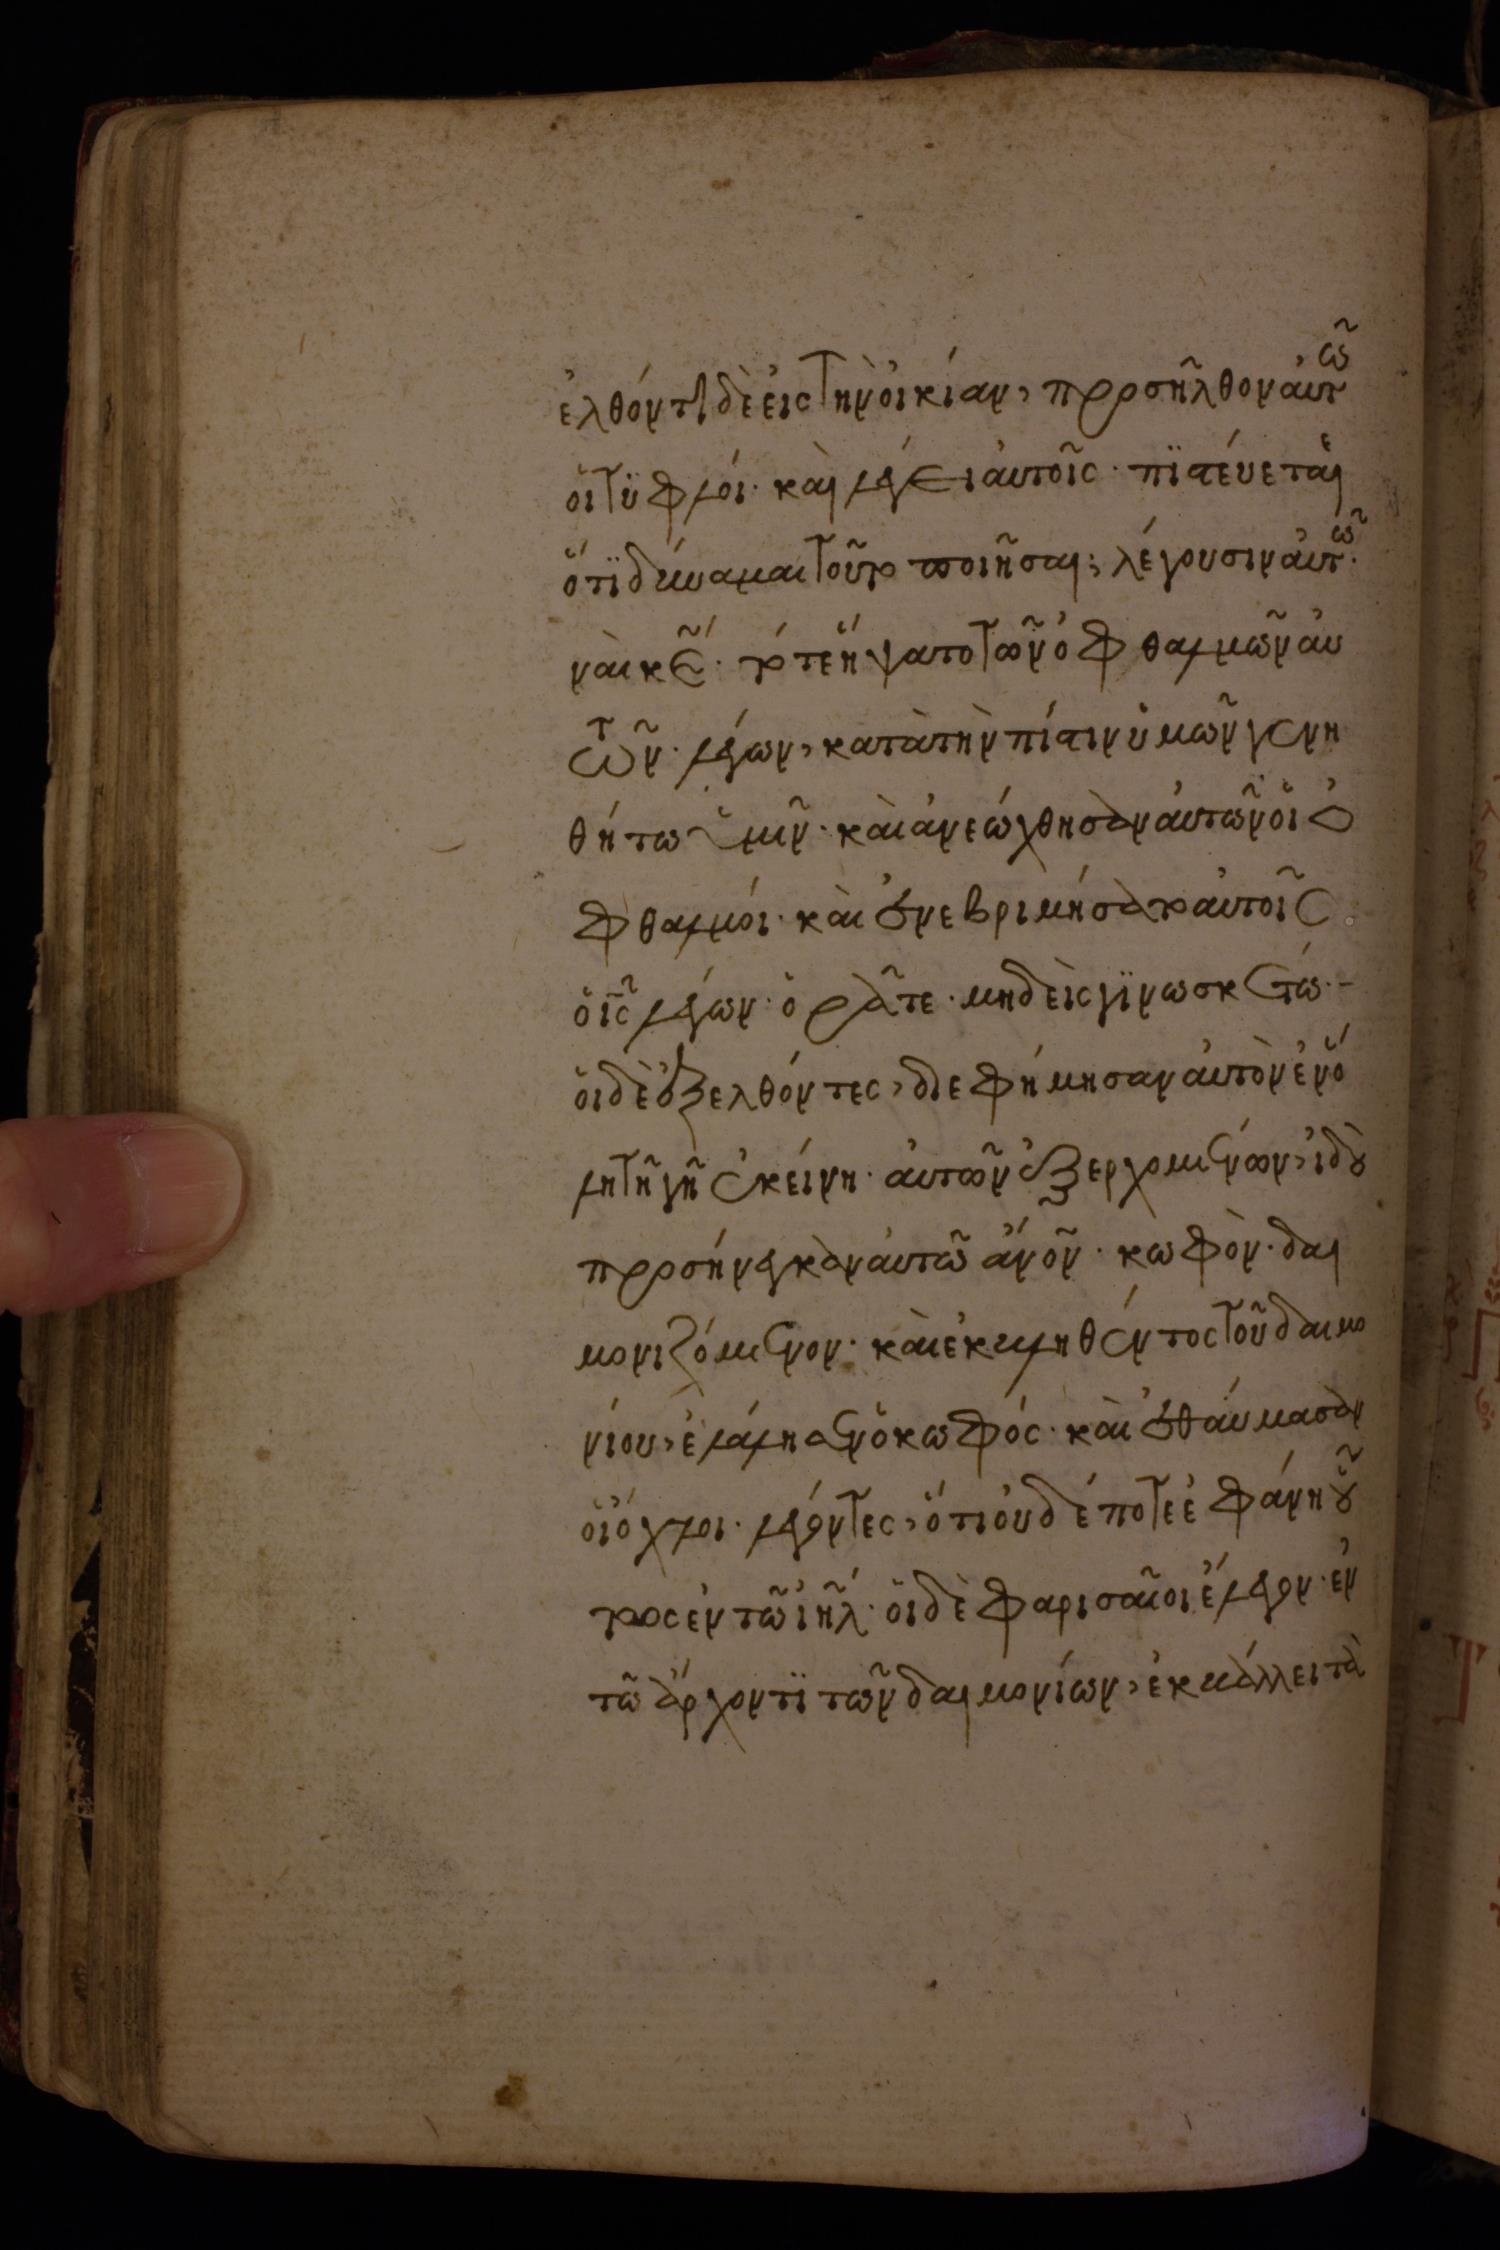 ἐλθόντι δὲ εἰς τὴν οἰκίαν, προσῆλθον αὐτῶ
ὁι τυφλόι· καὶ λέγει αὐτοῖς· πϊστέυεται
ὅτϊ δύναμαι τοῦτο ποιῆσαι; λέγουσιν αὐτῶ·
νὰι κε̃· τότε ἥψατο τῶν ὀφθαλμῶν αὐ
τῶν· λέγων, κατὰ τὴν πίστιν ὑμῶν γενη
θήτω ὑμῖν· καὶ ἀνεώχθησαν αὐτῶν ὁι ὀ
φθαλμόι· καὶ ἐνεβριμήσατο αὐτοῖς
ὁ ις̃ λέγων· ὁρᾶτε· μηδεὶς γϊνωσκέτω·-
ὁι δὲ ἐξελθόντες, διεφήμησαν αὐτὸν ἐν ὅ
λη τῆ γῆ ἐκείνη· ἀυτῶν ἐξερχομένων, ἰδοὺ
προσήνεγκαν αὐτῶ ἄνον̃· κωφὸν· δαι
μονιζόμενον· καὶ ἐκβληθέντος τοῦ δαιμο
νίου, ἐλάλησεν ὁ κωφός· καὶ ἐθάυμασαν
ὁι ὄχλοι· λέγοντες, ὅτι οὐδέποτε ἐφάνη οὕ
τος ἐν τῶ ιηλ̃· ὁι δὲ φαρισαῖοι ἔλεγον· ἐν
τῶ ἄρχοντϊ τῶν δαιμονίων, ἐκβάλλει τὰ